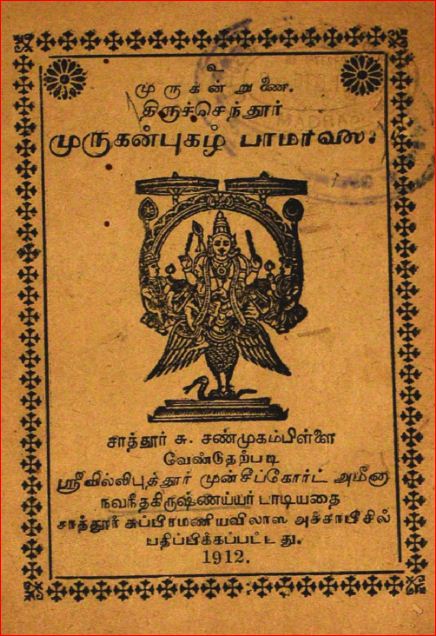 உ
முருகன்றுணை.
திருச்செந்தூர்
முருகன்புகழ் பாமாலை.
சாத்தூர் சு. சண்முகம்பிள்ளை
வேண்டுதற்படி
ஸ்ரீவில்லிபுத்தூர் முன்சீப்கோர்ட் அமீனா
நவநீதகிருஷ்ணய்யர் பாடியதை
சாத்தூர் சுப்பிரமணியவிலாஸ அச்சாபீசில்
பதிப்பிக்கப்பட்டது.
1912.
MADRAS